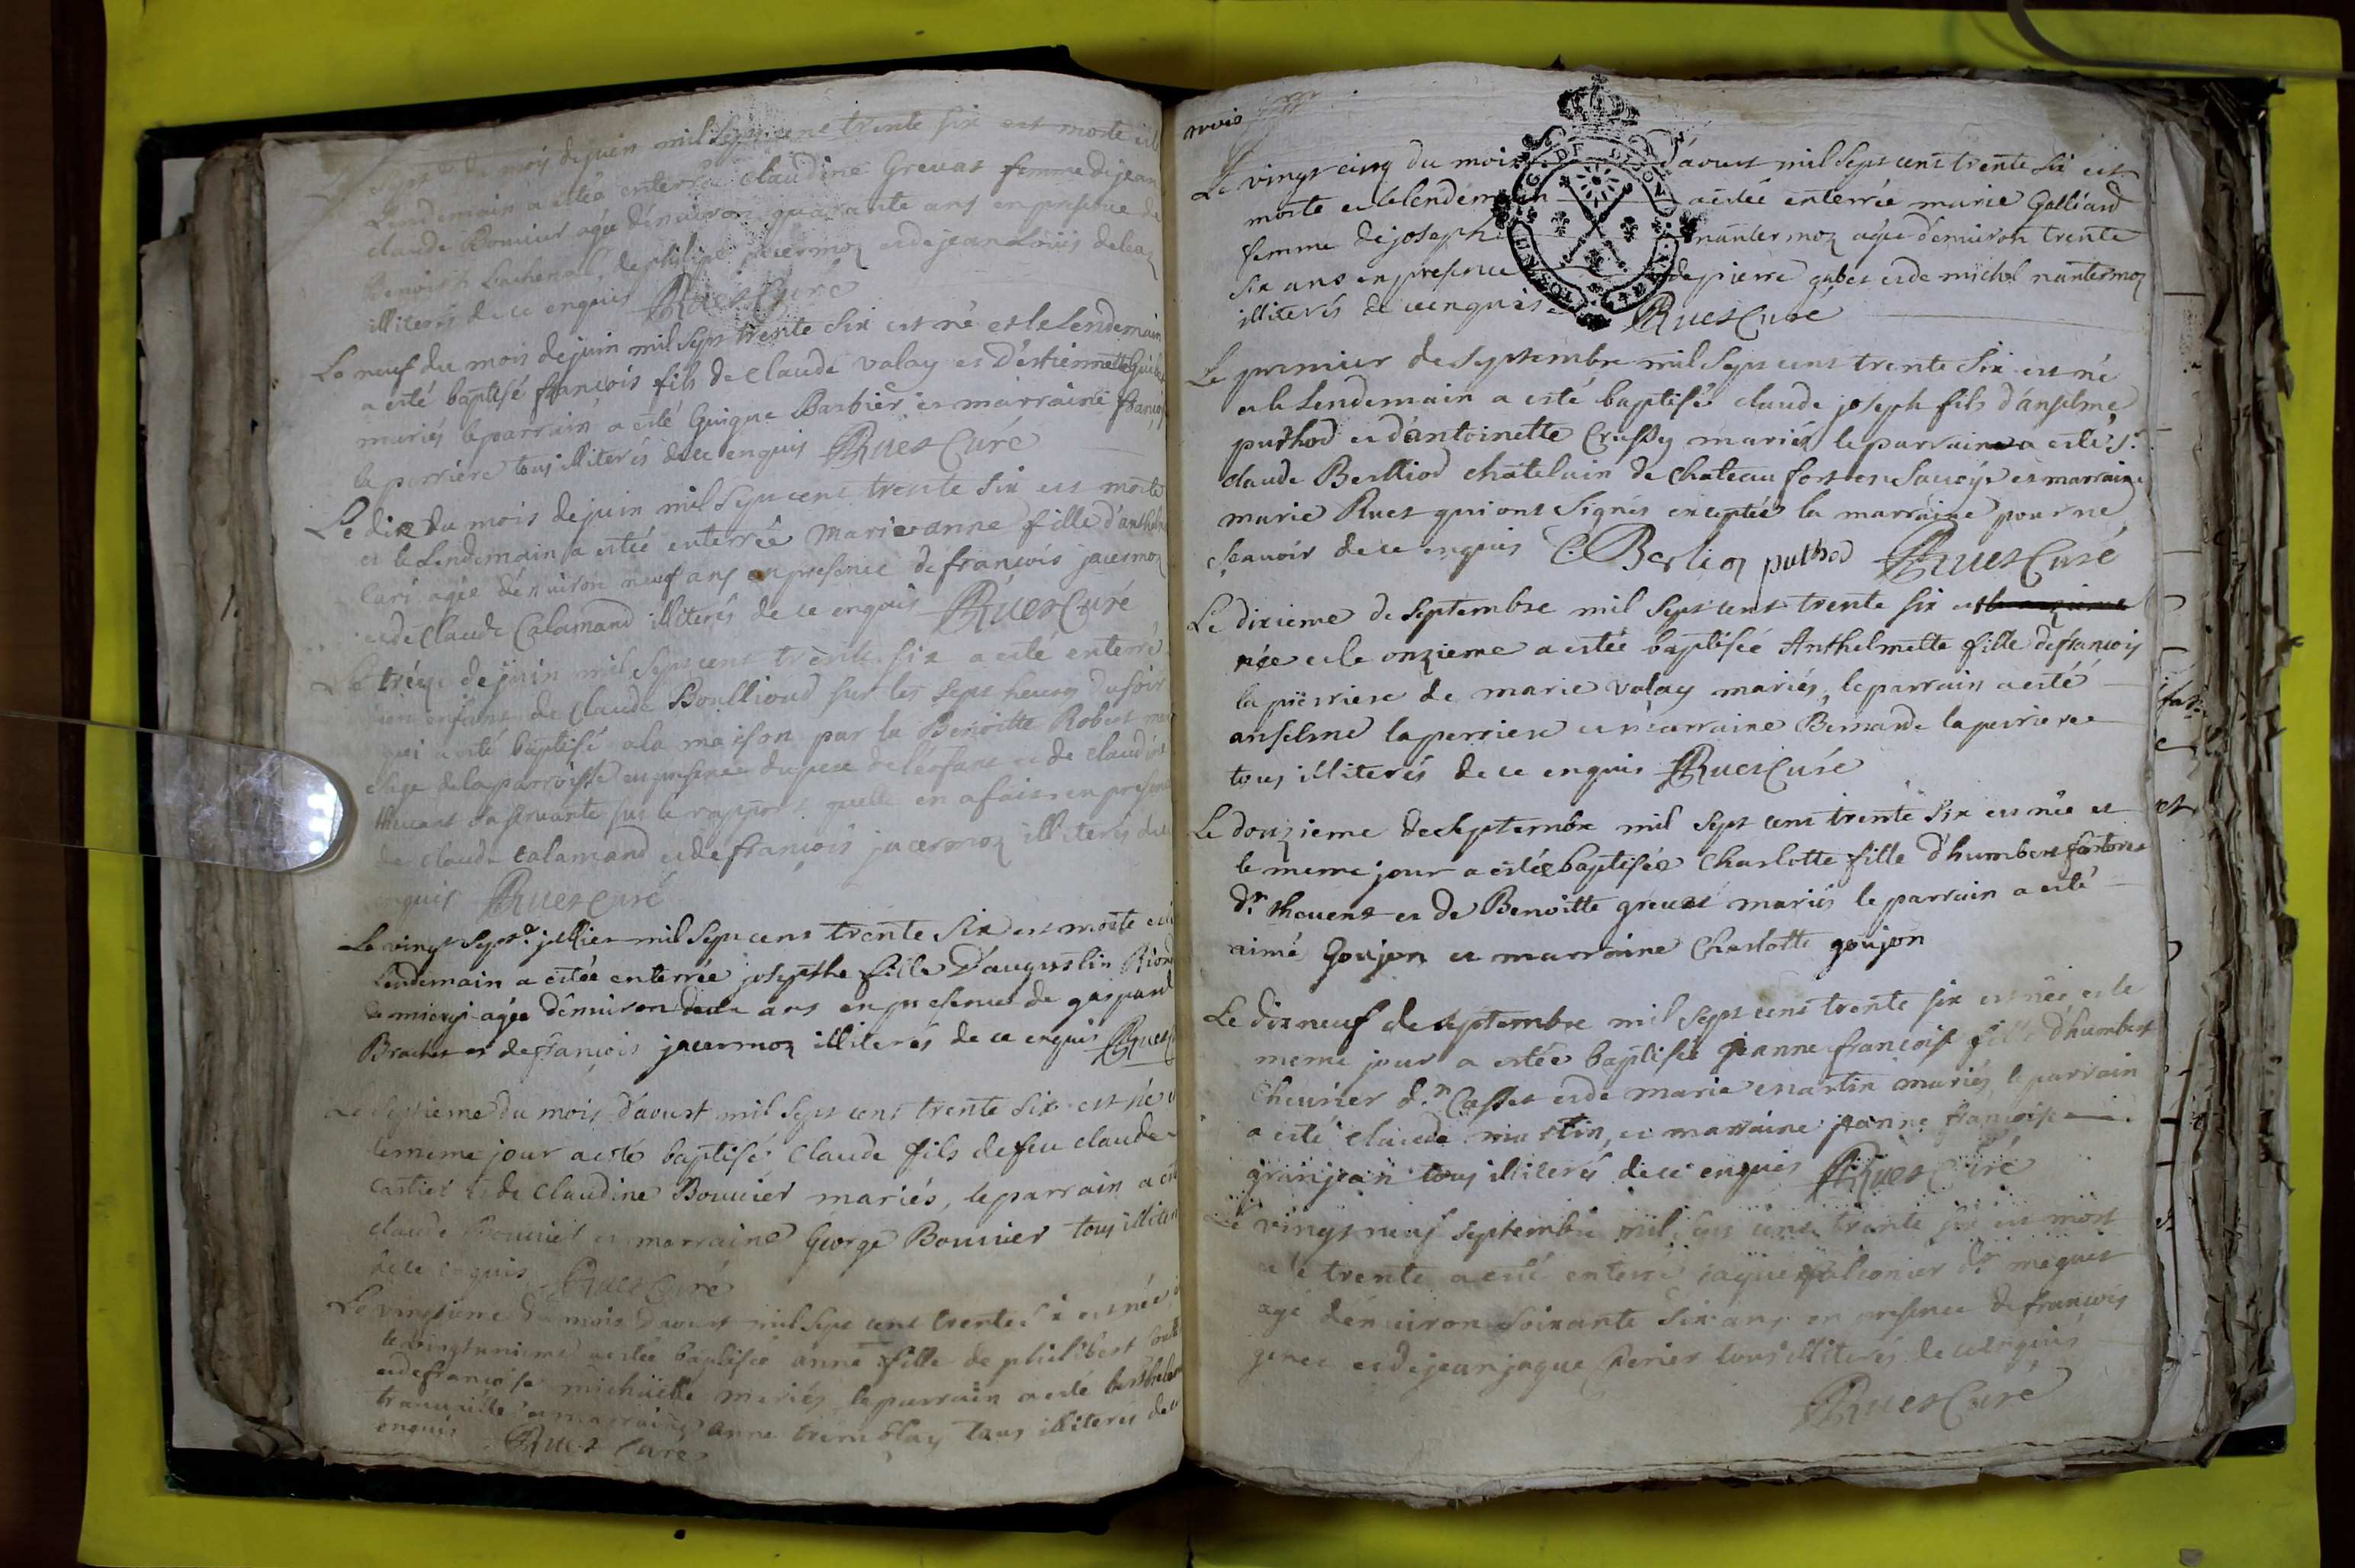 du mois de juin mil sept cent trente six est morte et le
Lendemain a estée enterrée claudine Grevat femme de jean
claude Bouvier agée d'environ quarante ans en presence de
Benoist Lachenal, de philipe jacermoz et de jean Louis
illiterés de ce enquis Ruet Curé
Le neuf du mois de juin mil sept trente six est né et le Lendemain
a esté baptisé françois fils de claude valay et d'estiennette
mariés le parrain a esté Guigue Barbier et marraine
la perriere tous illiterés de ce enquis Ruet Curé
Le dix du mois de juin mil sept cent trente six est morte
et le Lendemain a estée enterrée Marie anne fille d'anthelme
Cari agée d'environ neuf ans en presence de françois jacermoz
et de Claude Calamand illiterés de ce enquis Ruet Curé
Le tréze de juin mil sept cent trente six a esté enterré
un enfant de Claude Boullioud sur les sept heures du soir
qui a esté baptisé a la maison par la Benoitte Robert
sage de la parroisse en presence du pere de l'enfant et de claudine
thevent sa servante sur le rapport quelle en a fait en presence
de claude Calamand et de françois jacermoz illiterés de ce
enquis Ruet Curé
Le vingt sept.e jullier mil sept cent trente six est morte et le
Lendemain a estée enterrée josepthe fille d'augustin
agée d'environ deux ans en presence de gaspard
Brachet et de françois jacermoz illiterés de ce enquis Ruet
Le septieme du mois d'aoust mil sept cent trente six est né et
le meme jour a esté baptisé Claude fils de feu claude
Cartier et de Claudine Bouvier mariés, le parrain a esté
claude Bouvier et marraine George Bouvier tous illiterés
de ce enquis Ruet Curé
Le vingtieme du mois d'aoust mil sept cent trente six est née
le vingtunieme a estée baptisée anne fille de philibert
et de françoise mariés le parrain a esté
et marraine anne tremblay tous illiterés de ce
enquis Ruet Curé
Le vingt cinq du mois d'aoust mil sept cent trente six est
morte et le Lendemain a estée enterrée marie Galliard
femme de joseph nantermoz agée d'environ trente
six ans en presence de pierre gubet et de michel nantermoz
illiterés de ce enquis Ruet Curé
GEN. DE LYON
Le premier de septembre mil sept cent trente six est né
et le Lendemain a esté baptisé claude joseph fils d'anselme
puthod et d'antoinette Crussy mariés le parrain a esté s.r
claude Berlliod châtelain de Chateau fort en Savoye et marraine
marie Ruet qui ont signés exceptée la marraine pour ne
sçavoir de ce enquis C. Berlioz puthod Ruet Curé
Le dixieme de septembre mil sept cent trente six est
née et le onzieme a estée baptisée Anthelmette fille de françois
la pierriere de marie valay mariés, le parrain a esté
anselme laperriere et marraine Bernarde la perriere
tous illiterés de ce enquis Ruet Curé
Le douzieme de septembre mil sept cent trente six est née et
le meme jour a estée baptisée Charlotte fille d'humbert
d.r thevent et de Benoitte grevat mariés le parrain a esté
aimé Goujon et marraine Charlotte goujon
Le dix neuf de septembre mil sept cent trente six est née et le
meme jour a estée baptisée jeanne françoise fille d'humbert
Chevrier d.r Casset et de marie martin mariés, le parrain
a esté claude martin, et marraine jeanne françoise
granjean tous illiterés de ce enquis Ruet Curé
Le vingt neuf septembre mil sept cent trente six est mort
et le trente a esté enterré jaque falconier d.r meguet
agé d'environ soixante six ans en presence de françois
genet et de jean jaque Perier tous illiterés de ce enquis
Ruet Curé